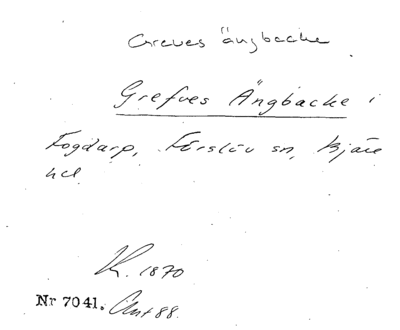 Greves ängbacke
Grefves Ängbacke i
Fogdarp, Förslöv sn, Bjäre
hd
K. 1870
Nr 7041. Änt 88.